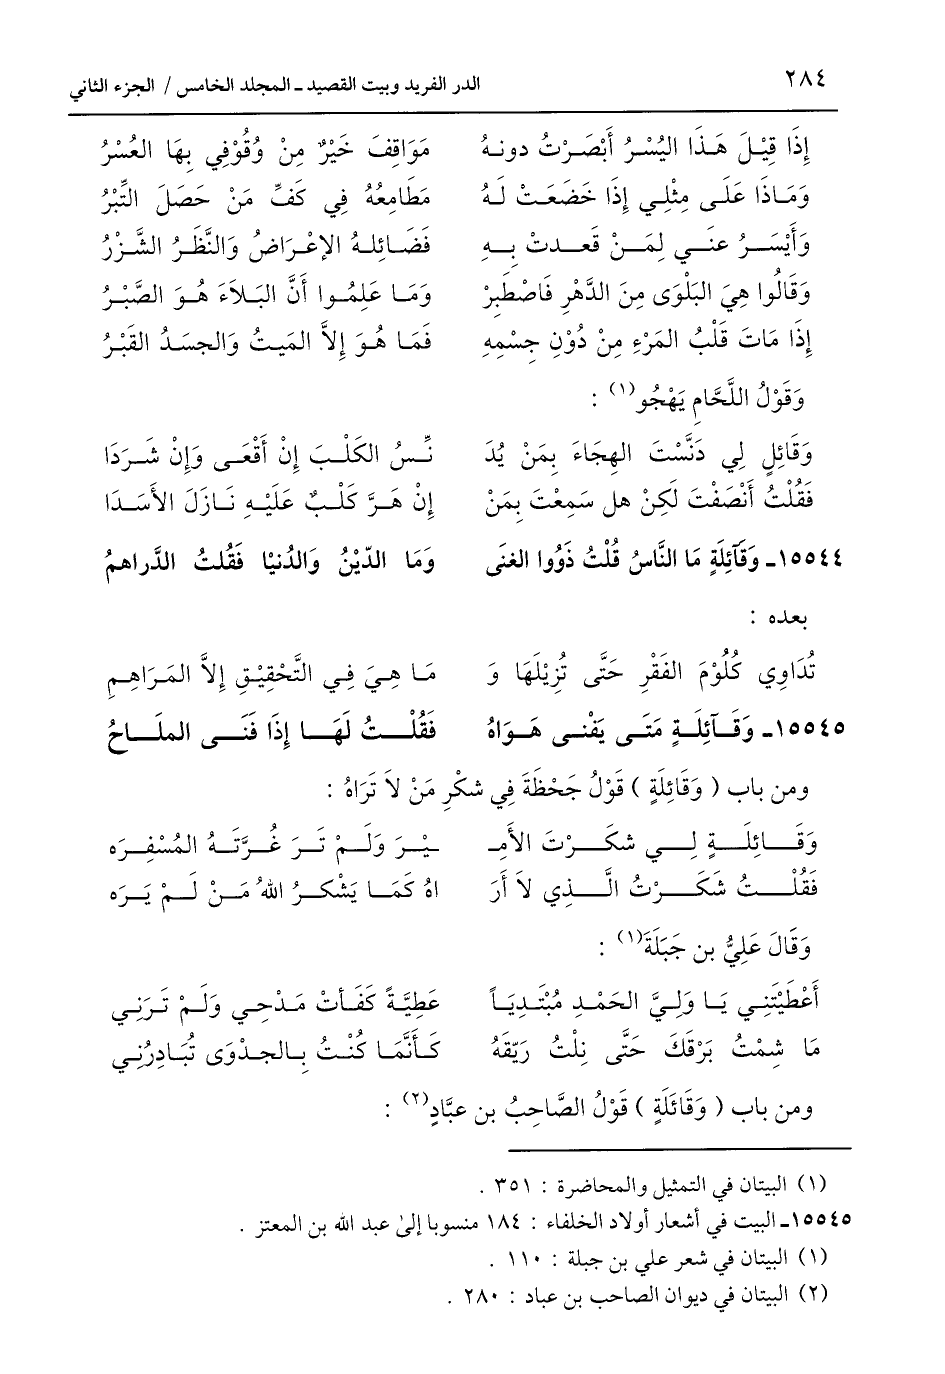 ٢٨٤ الدر الفريد وبيت القصيد ـ المجلد الخامس / الجزء الثاني
إِذَا قِيْلَ هَذَا اليُسْرُ أَبْصَرْتُ دونهُ مَوَاقِفَ خَيْرٌ مِنْ وُقُوْفِي بِهَا العُسْرُ
وَمَاذَا عَلَى مِثْلِي إِذَا خَضَعَتْ لَهُ مَطَامِعُهُ فِي كَفِّ مَنْ حَصَلَ التِّبْرُ
وَأَيْسَرُ عَنِّي لِمَنْ قَعدتْ بِهِ فَضَائِلهُ الإِعْرَاضُ وَالنَّظَرُ الشَّزْرُ
وَقَالُوا هِيَ البَلْوَى مِنَ الدَّهْرِ فَاصْطَبِرْ وَمَا عَلِمُوا أَنَّ البَلاَءَ هُوَ الصَّبْرُ
إِذَا مَاتَ قَلْبُ المَرْءِ مِنْ دُوْنِ جِسْمِهِ فَمَا هُوَ إِلاَّ المَيتُ وَالجسَدُ القَبْرُ
وَقَوْلُ اللَّحَّامِ يَهْجُو(١) :
وَقَائِلٍ لِي دَنَّسْتَ الهِجَاءَ بِمَنْ يُدَ نِّسُ الكَلْبَ إِنْ أَقْعَى وَإِنْ شَرَدَا
فَقُلْتُ أَنْصَفْتَ لَكِنْ هل سَمِعْتَ بِمَنْ إِنْ هَرَّ كَلْبٌ عَلَيْهِ نَازَلَ الأَسَدَا
١٥٥٤٤ـ وَقَآئِلَةٍ مَا النَّاسُ قُلْتُ ذَوُوا الغنَى وَمَا الدّيْنُ وَالدُنيَا فَقُلتُ الدَّراهمُ
بعده :
تُدَاوِي كُلُوْمَ الفَقْرِ حَتَّى تُزِيْلَهَا وَ مَا هِيَ فِي التَّحْقِيْقِ إِلاَّ المَرَاهِمِ
١٥٥٤٥ـ وَقَآئِلَةٍ مَتَى يَفْنى هَوَاهُ فَقُلْتُ لَهَا إِذَا فَنَى الملَاحُ
ومن باب ( وَقَائِلَةٍ ) قَوْلُ جَحْظَةَ فِي شكْرِ مَنْ لاَ تَرَاهُ :
وَقَائِلَةٍ لِي شَكَرْتَ الأَمِـ ـيْرَ وَلَمْ تَرَ غُرَّتَهُ المُسْفِرَه
فَقُلْتُ شَكَرْتُ الَّذِي لاَ أَرَ اهُ كَمَا يَشْكرُ اللهُ مَنْ لَمْ يَرَه
وَقَالَ عَلِيُّ بن جَبَلَةَ(١) :
أَعْطَيْتَنِي يَا وَلِيَّ الحَمْدِ مُبْتَدِيَاً عَطِيَّةً كَفَأتْ مَدْحِي وَلَمْ تَرَنِي
مَا شِمْتُ بَرْقكَ حَتَّى نِلْتُ رَيّقَهُ كَأَنَّمَا كُنْتُ بِالجدْوَى تُبَادِرُنِي
ومن باب ( وَقَائَلَةٍ ) قَوْلُ الصَّاحِبُ بن عبَّادٍ(٢) :
(١) البيتان في التمثيل والمحاضرة : ٣٥١ .
١٥٥٤٥ـ البيت في أشعار أولاد الخلفاء : ١٨٤ منسوبا إلىٰ عبد الله بن المعتز .
(١) البيتان في شعر علي بن جبلة : ١١٠ .
(٢) البيتان في ديوان الصاحب بن عباد : ٢٨٠ .